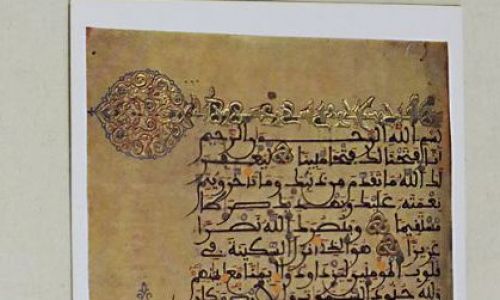 بسم الله الرحمن الرحيم
انا فتحنا لك فتحا مبينا ليغفر
لك الله ما تقدم من ذنبك وما تاخر ويتم
نعمته عليك ويهديك صرطا
مستقيما وينصرك الله نصرا
عزيزا هو الذي انزل السكينة في
قلوب المومنين ليزدادوا ايمنا مع ايمنهم
ولله جنود السموت والارض وكان